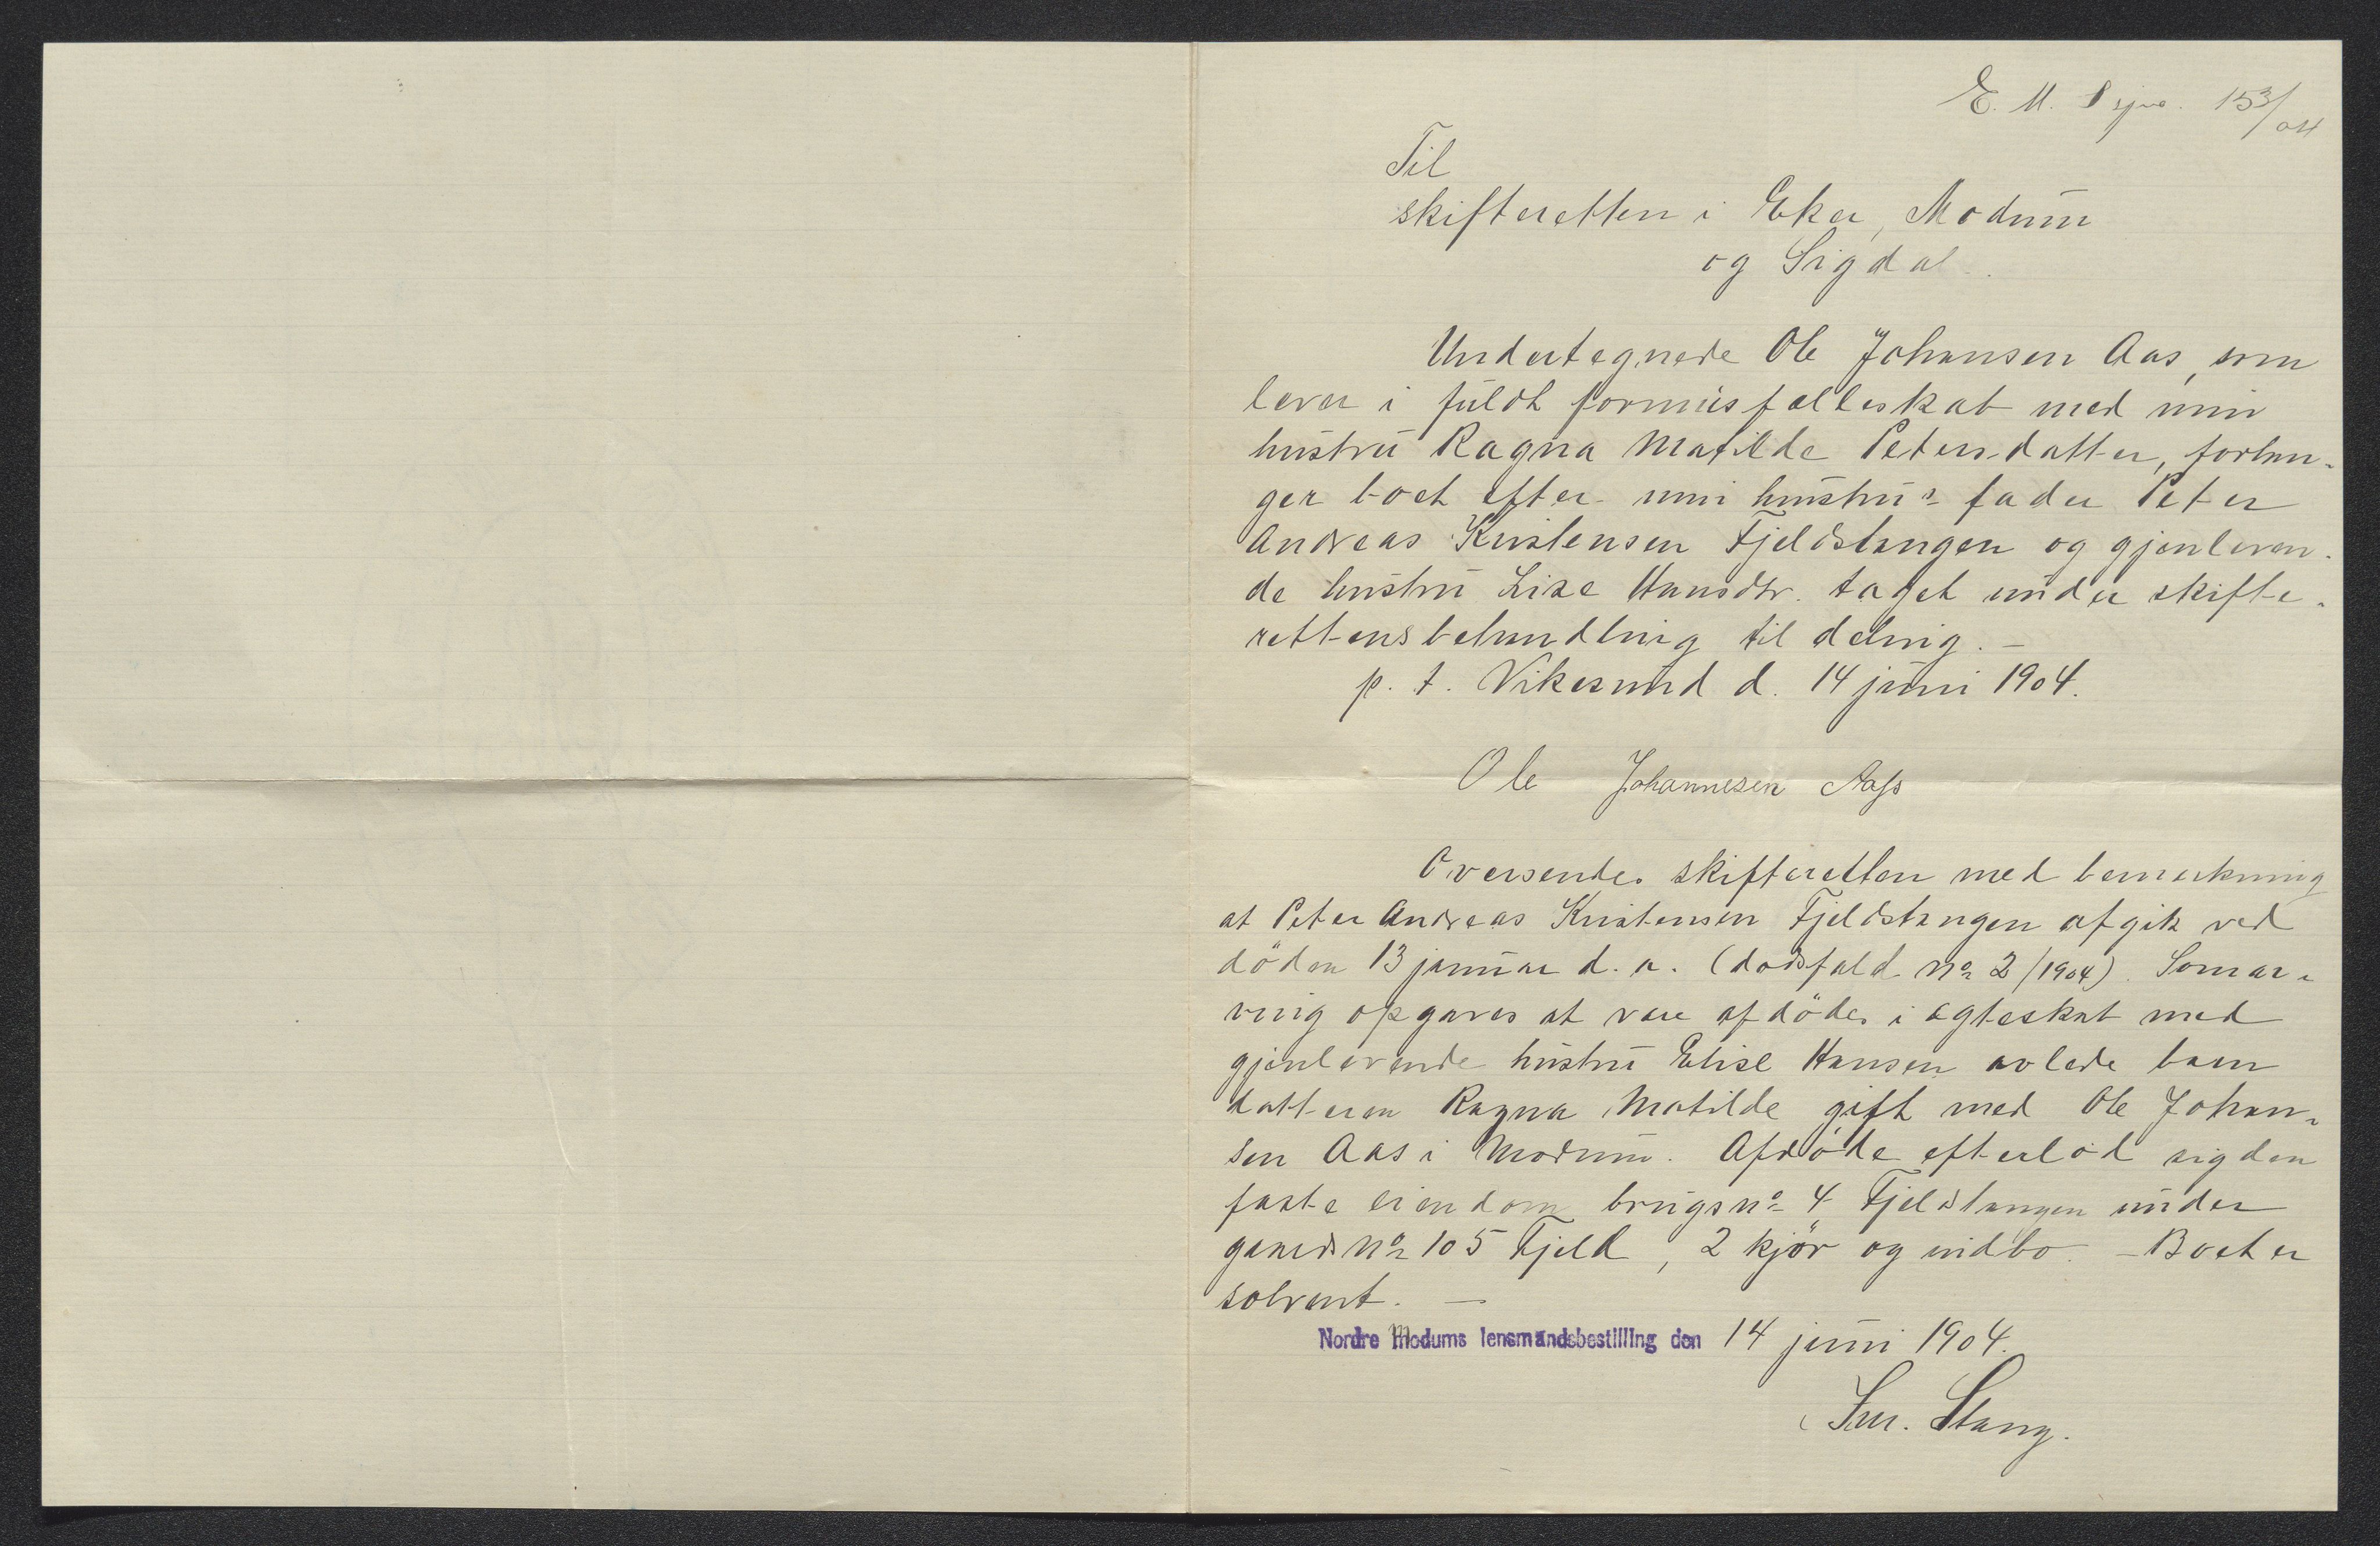 E. M. S sjre. 153/04
Til
skifteretten i Eker, Modum
og Sigdal.
Undertegnede Ole Johansen Aas, som
lever i fuldt formuesfælleskab med min
hustru Ragna Matilde Petersdatter, forlan-
ger boet efter min hustrus fader Peter
Andreas Kristensen Fjeldstangen og gjenleven-
de hustru Lise Hansdtr. taget under skifte-
rettens behandling til deling. —
p. t. Vikesund d. 14 juni 1904.
Ole Johannesen Aass
Oversendes skifteretten med bemerkning
at Peter Andreas Kristensen Fjeldstangen afgik ved
döden 13 januar d. a. (dødsfald No 2/1904). Som ar-
ving opgaves at være afdödes i ægteskab med
gjenlevende hustru Elise Hansen avlede barn
datteren Ragna Matilde gift med Ole Johan-
sen Aas i Modum. Afdøde efterlod sig den
faste eiendom brugsno 4 Fjeldstangen under
gaards No 105 Fjeld, 2 kjör og indbo. — Boet er
solvent. —
Nordre Modums lensmandsbestilling den 14 juni 1904.
Stang.